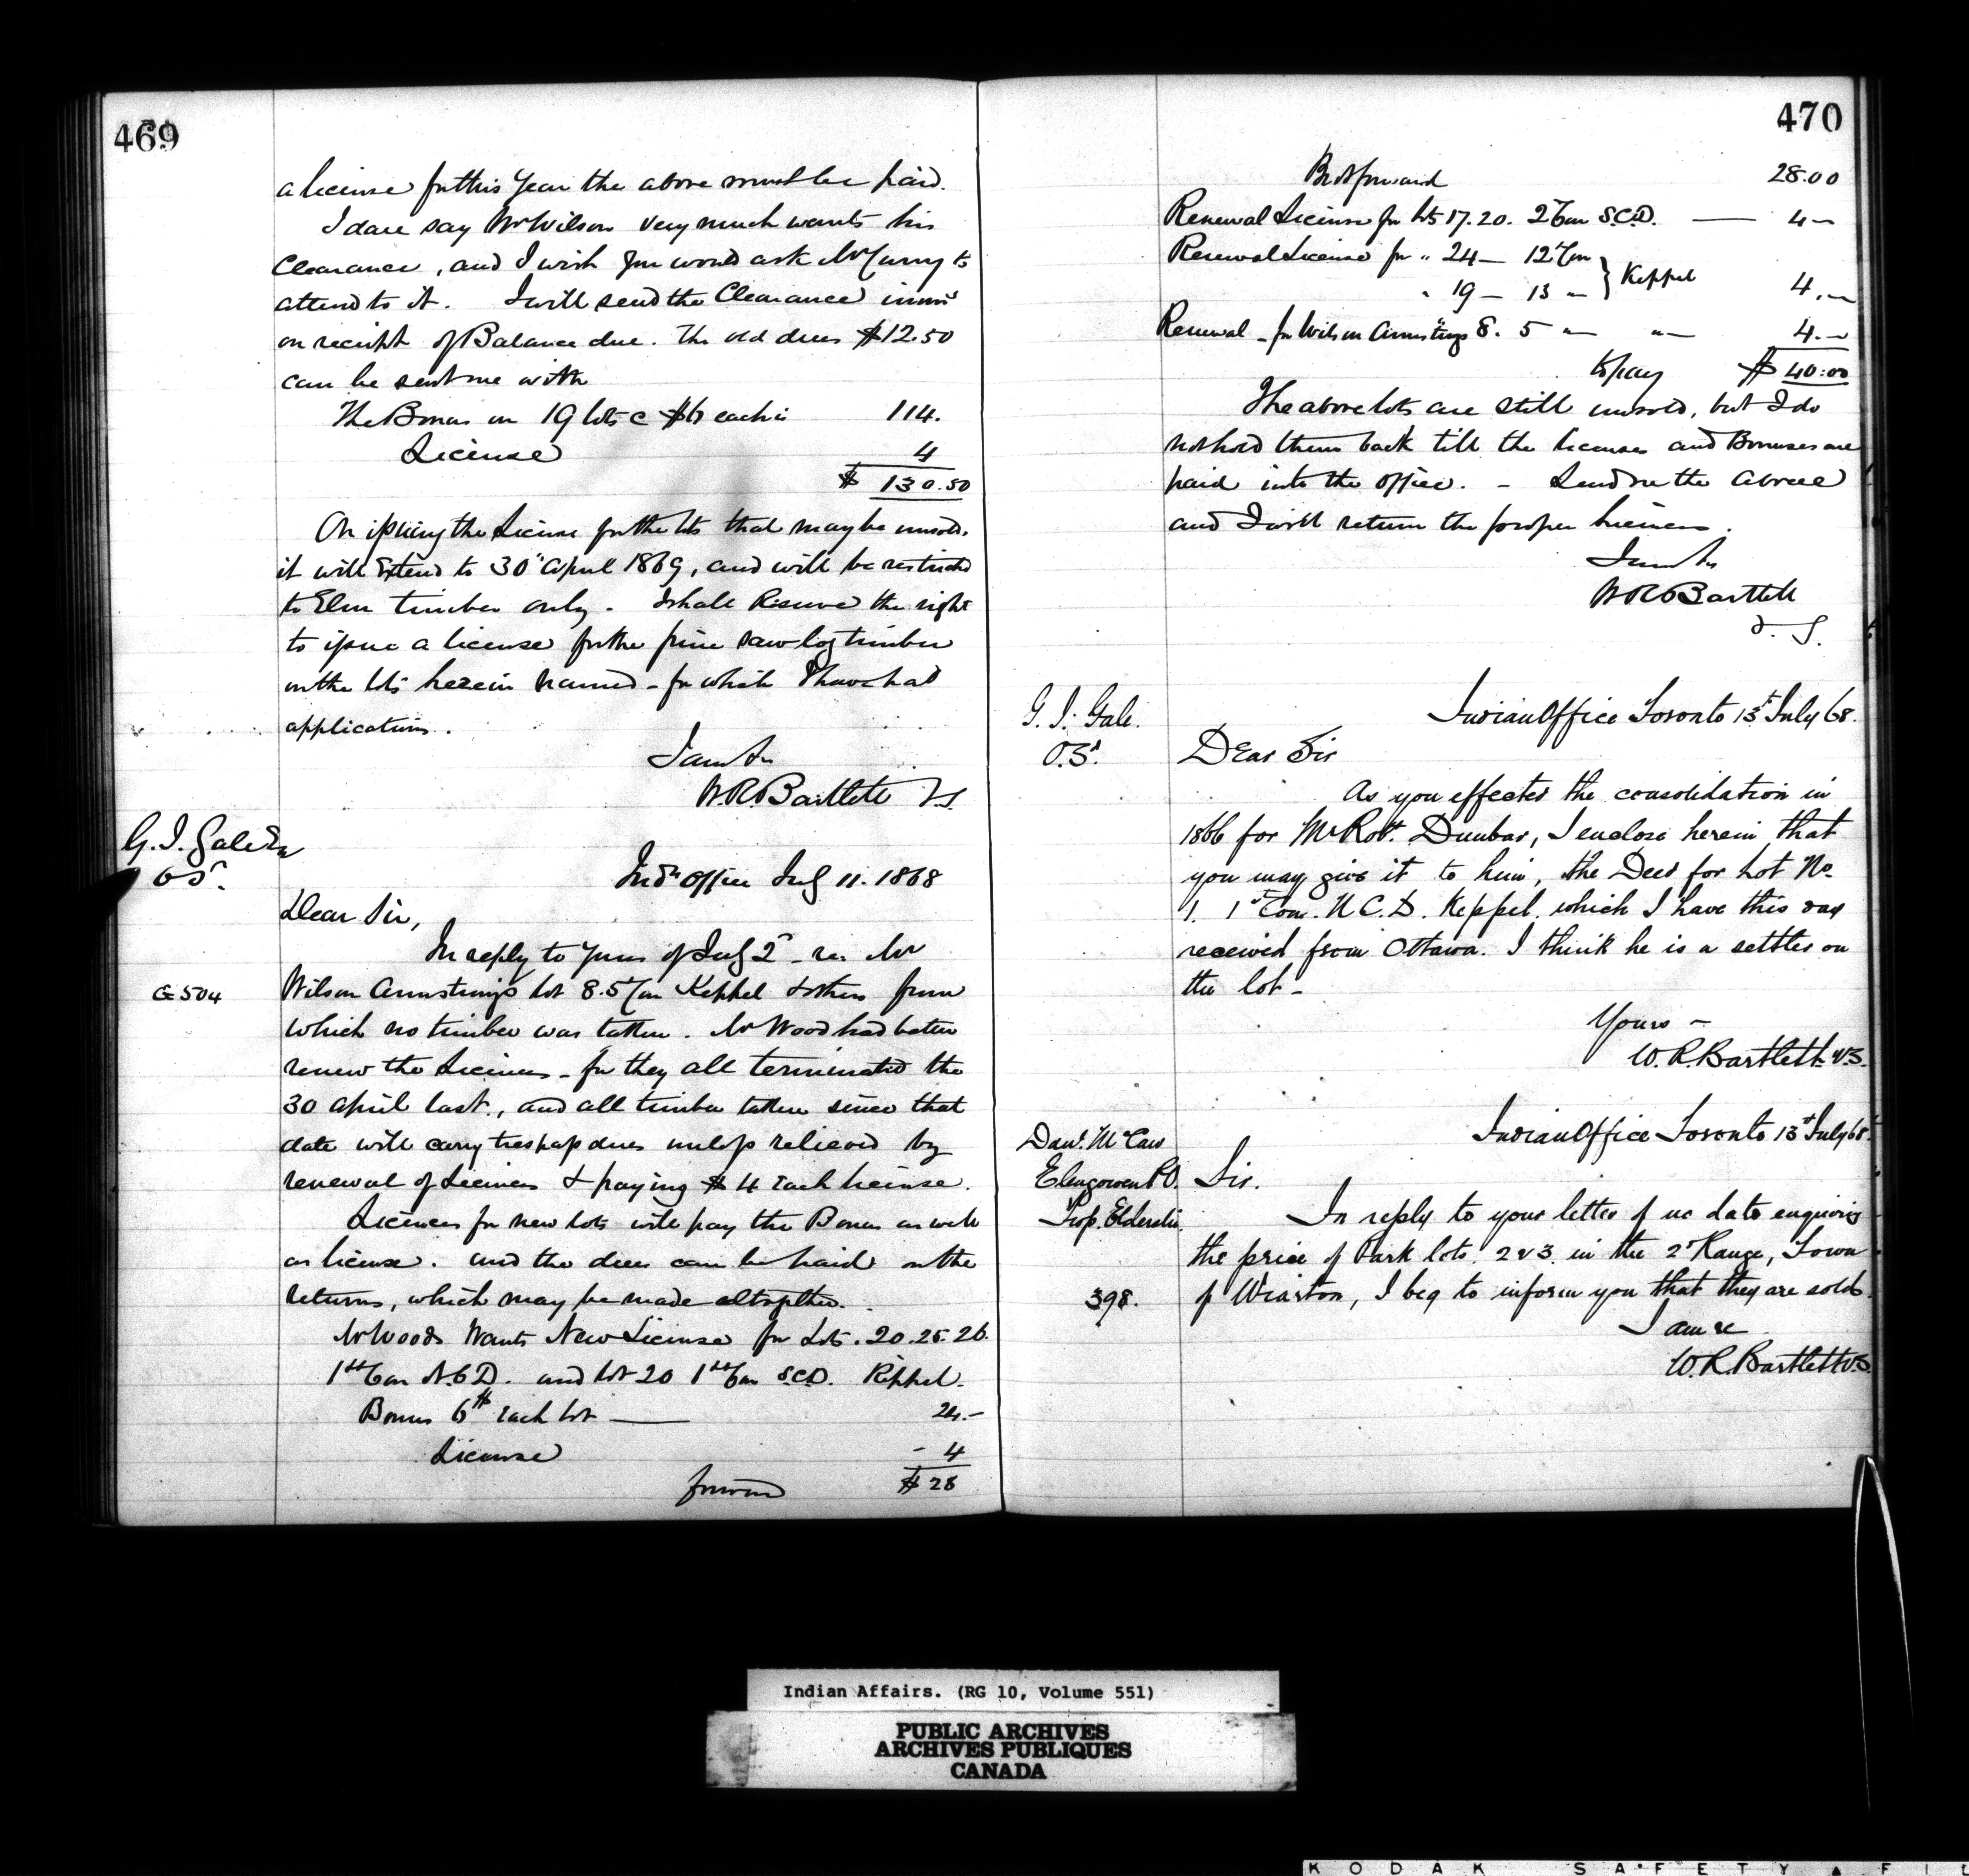 469
a license for this year the above must be paid.
I dare say Mr Wilson very much wants his
Clearance, and I wish you would ask Mr Curry to
attend to it. I will send the Clearance
on receipt of Balance due. The old dues $12.50
can be sent me with
The Bonus on 19 lots @ $6 each is 114.
License 4
$ 130.50
On issuing the License for the lots that may be unsold,
it will Extend to 30th April 1869, and will be restricted
to Elm timber only. I shall Reserve the right
to issue a license for the pine saw log timber
on the lots herein named - for which I have had
application.
I am &c
W.R. Bartlett V.S.
G. I. Gale Esq
O.S.
Indn Office July 11. 1868
Dear Sir,
In reply to yours of July 2nd - re. Mr
G 504
Wilson Armstrongs lot 8. 5 Con Keppel & others from
which no timber was taken. Mr Wood had better
renew the Licenses - for they all terminated the
30 April last, and all timber taken since that
date will carry trespass dues unless relieved by
renewal of Licenses & paying $4 Each license.
Licenses for new lots will pay the Bonus as well
as license. and the dues can be paid on the
returns, which may be made altogether.
Mr Woods Wants New License for Lots. 20. 25. 26.
1st Con N.C.D. and Lot 20 1st Con S.C.D. Keppel.
Bonus 6$ Each lot — 24.-
License - 4
$ 28
forward
470
Brot forward 28.00
Renewal License for lots 17. 20. 2 Con S.C.D. — 4 -
Renewal License for " 24 - 12 Con
" 19 - 13 " } Keppel 4.-
Renewal - for Wilson Armstrongs 8. 5 " " 4.-
to pay $ 40.00
The above lots are still unsold, but I do
not hold them back till the licenses and Bonuses are
paid into the office. - Send me the above
and I will return the proper licenses.
I am &c
W R Bartlett
V. S.
G. I. Gale.
O.Sd.
Indian Office Toronto 13th July 68.
Dear Sir
As you effected the consolidation in
1866 for Mr Robt. Dunbar, I enclose herein that
you may give it to him, the Deed for Lot No.
1. 1st Con. N.C.D. Keppel. which I have this day
received from Ottawa. I think he is a settler on
the lot -
Yours -
W. R. Bartlett V.S.
Indian Office Toronto 13th July 68.
Danl. McCaw
Elengowen P.O.
Twp. Elderslie.
Sir.
In reply to your letter of no date enquiring
the price of Park lots. 2 & 3. in the 2d Range, Town
398.
of Wiarton, I beg to inform you that they are sold.
I am &c
W. R. Bartlett V.S.
Indian Affairs. (RG 10, Volume 551)
PUBLIC ARCHIVES
ARCHIVES PUBLIQUES
CANADA
KODAK SAFETY FIL